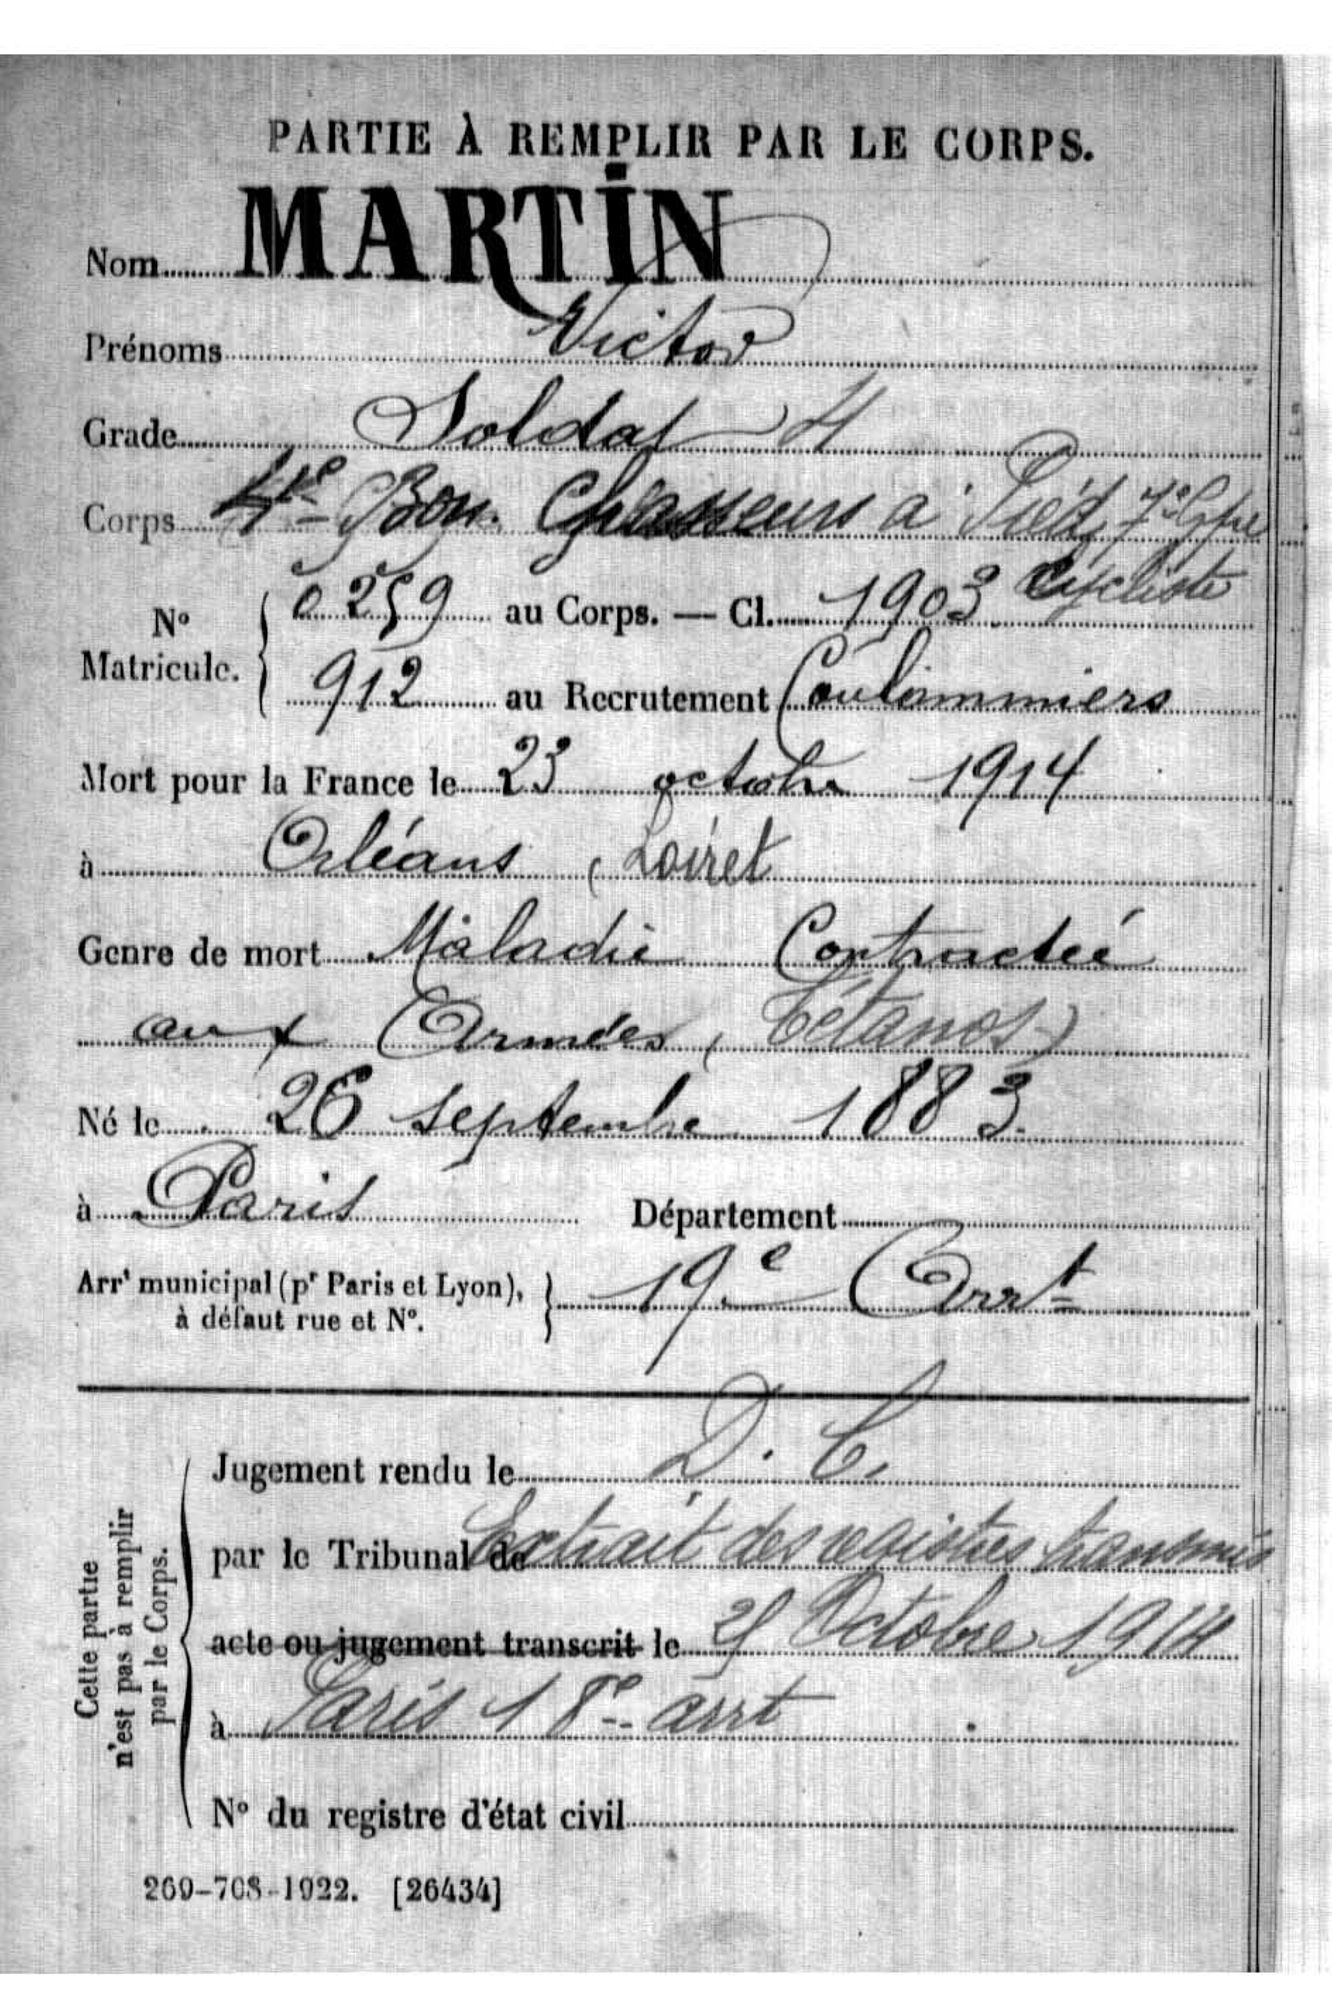 PARTIE À REMPLIR PAR LE CORPS.
Nom MARTIN
Prénoms Victor
Grade Soldat
Corps 4e Bon. Chasseurs à Pied, 7e Gpe
Cycliste
No Matricule. { 0259 au Corps. — Cl. 1903
912 au Recrutement Coulommiers
Mort pour la France le 23 octobre 1914
à Orléans, Loiret
Genre de mort Maladie Contractée
aux Armées, (Tétanos)
Né le 26 septembre 1883
à Paris Département
Arrt municipal (pr Paris et Lyon), à défaut rue et No. } 19e Arrt
Cette partie n'est pas à remplir par le Corps.
Jugement rendu le D. C.
par le Tribunal de Extrait des registres transmis
acte ou jugement transcrit le Octobre 1914
à Paris 18e arrt
No du registre d'état civil
269-708-1922. [26434]